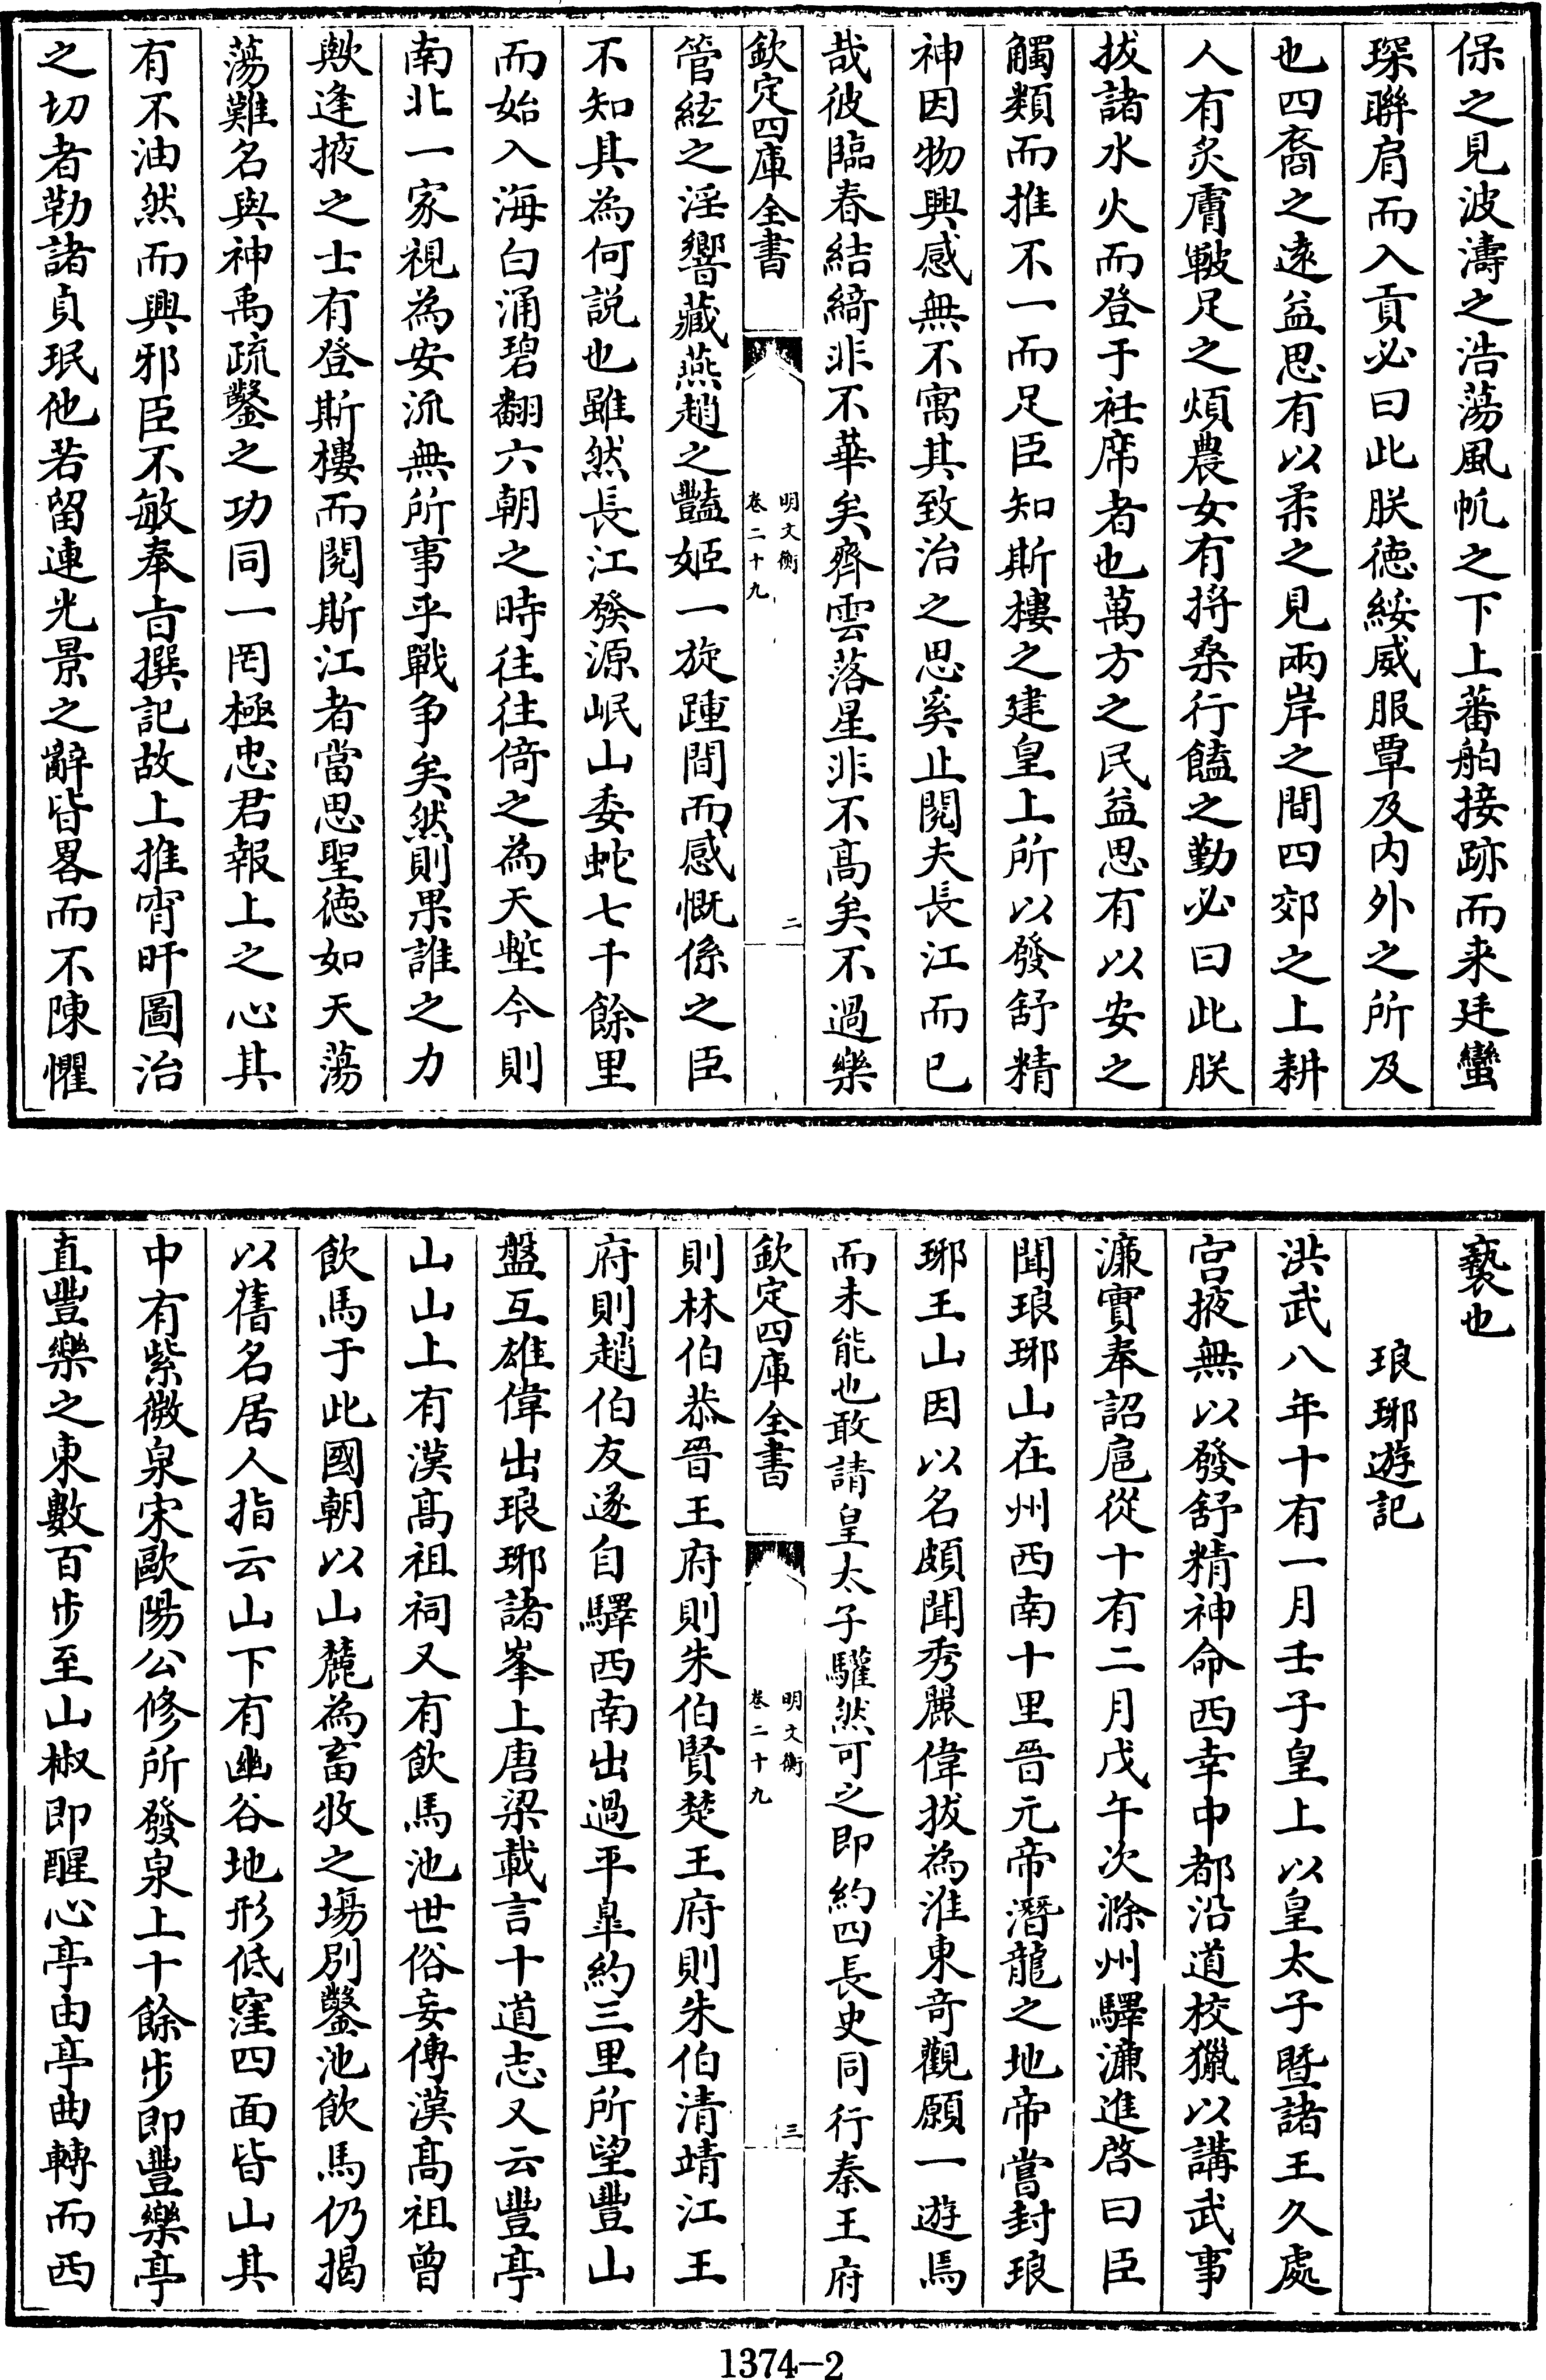 保之見波濤之浩蕩風帆之下上蕃舶接跡而来廷蠻
琛聨肩而入貢必曰此朕徳綏威服覃及内外之所及
也四裔之逺益思有以柔之見兩岸之間四郊之上耕
人有炙膚皸足之煩農女有捋桑行饁之勤必曰此朕
拔諸水火而登于衽席者也萬方之民益思有以安之
觸類而推不一而足臣知斯樓之建皇上所以發舒精
神因物興感無不寓其致治之思奚止閱夫長江而已
哉彼臨春結綺非不華矣齊雲落星非不髙矣不過樂
欽定四庫全書
明文衡
卷二十九
二
管絃之淫響藏燕趙之豔姬一旋踵間而感慨係之臣
不知其為何説也雖然長江發源岷山委蛇七千餘里
而始入海白涌碧翻六朝之時往往倚之為天塹今則
南北一家視為安流無所事乎戰争矣然則果誰之力
歟逢掖之士有登斯樓而閱斯江者當思聖徳如天蕩
蕩難名與神禹疏鑿之功同一罔極忠君報上之心其
有不油然而興邪臣不敏奉㫖撰記故上推宵旰圖治
之切者勒諸貞珉他若留連光景之辭皆畧而不陳懼
褻也
琅琊遊記
洪武八年十有一月壬子皇上以皇太子暨諸王久處
宫掖無以發舒精神命西幸中都沿道校獵以講武事
濂實奉詔扈從十有二月戊午次滁州驛濂進啓曰臣
聞琅琊山在州西南十里晉元帝潛龍之地帝嘗封琅
琊王山因以名頗聞秀麗偉拔為淮東竒觀願一遊焉
而未能也敢請皇太子驩然可之即約四長史同行秦王府
欽定四庫全書
明文衡
卷二十九
三
則林伯恭晉王府則朱伯賢楚王府則朱伯清靖江王
府則趙伯友遂自驛西南出過平臯約三里所望豐山
盤互雄偉出琅琊諸峯上唐梁載言十道志又云豐亭
山山上有漢髙祖祠又有飲馬池世俗妄傳漢髙祖曾
飲馬于此國朝以山麓為畜牧之場别鑿池飲馬仍揭
以舊名居人指云山下有幽谷地形低窪四面皆山其
中有紫微泉宋歐陽公修所發泉上十餘步即豐樂亭
直豐樂之東數百步至山椒即醒心亭由亭曲轉而西
1374-2